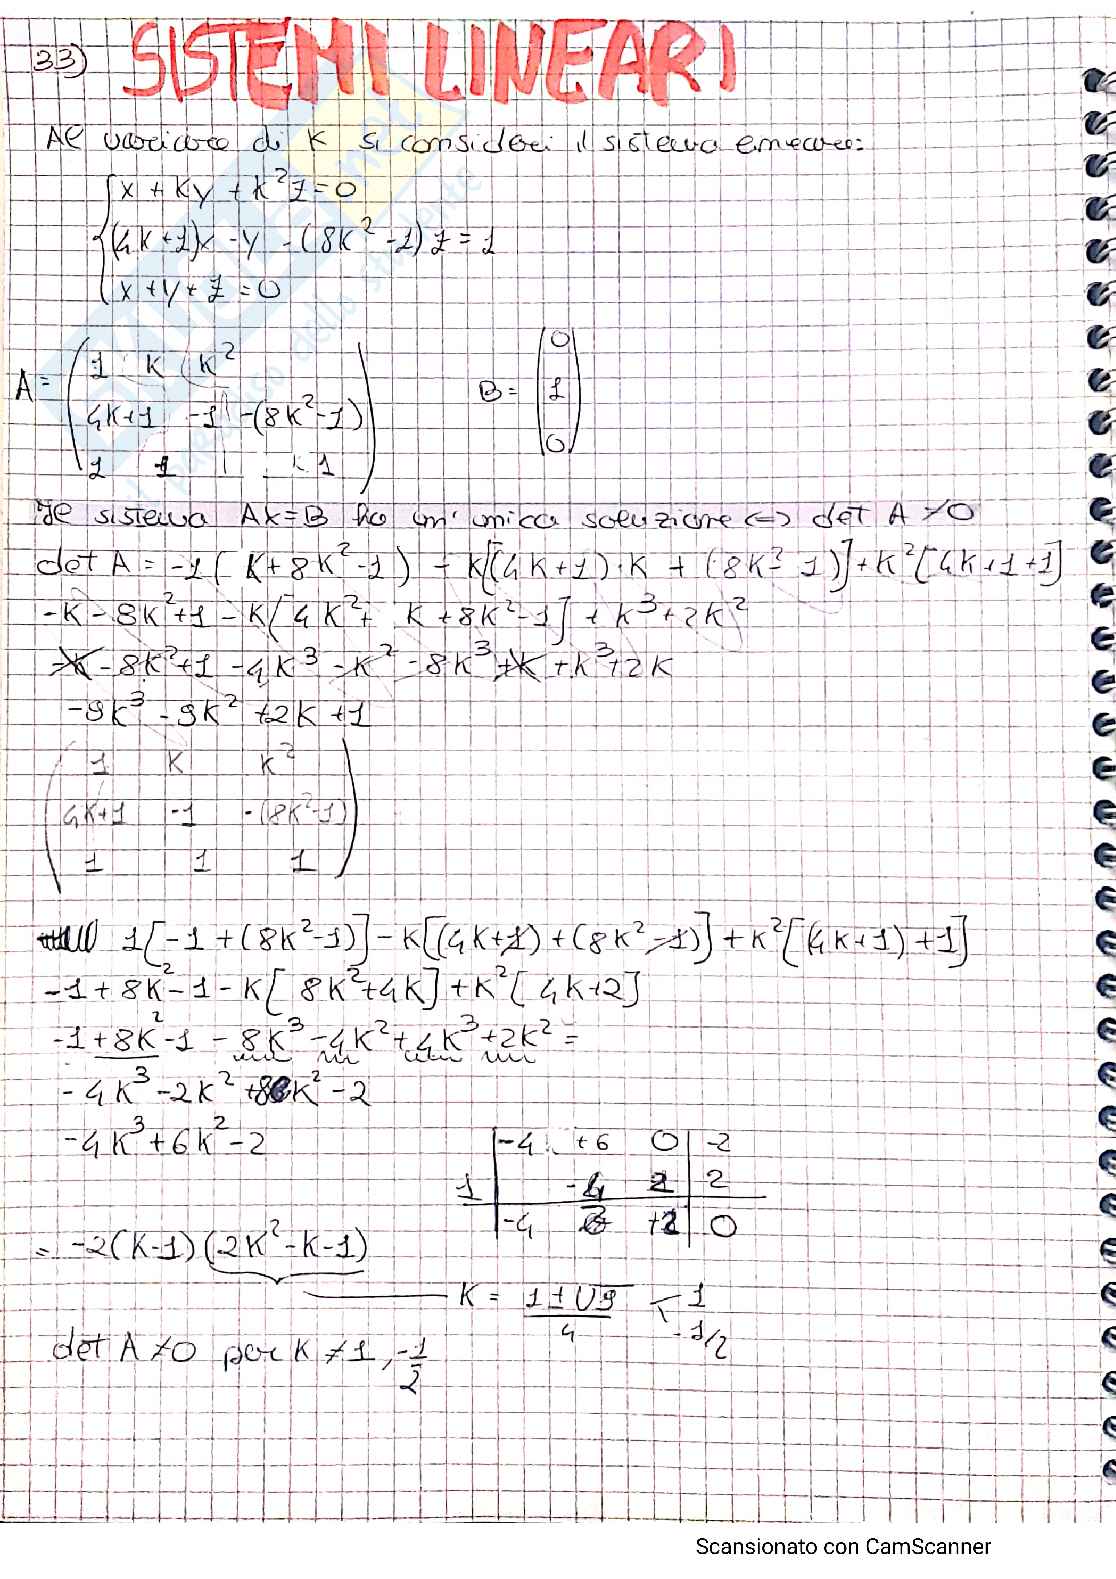 33) SISTEMI LINEARI
Al variare di K si consideri il sistema lineare:
x + Ky + K²z = 0
(4K+1)x - y - (8K² - 1)z = 1
x + y + z = 0
A = 1 K K² B = 0
4K+1 -1 -(8K²-1) 1
1 1 1 0
Il sistema AX=B ha un'unica soluzione <=> det A ≠ 0
det A = -1( K+8K²-1) - K[(4K+1)·K + (8K²-1)] + K²[4K+1+1]
-K - 8K²+1 - K[4K²+ K+8K²-1] + K³+2K²
-K - 8K²+1 - 4K³ - K² - 8K³ + K + K³+2K
-9K³ - 9K² + 2K + 1
1 K K²
4K+1 -1 -(8K²-1)
1 1 1
1[-1 + (8K²-1)] - K[(4K+1) + (8K²-1)] + K²[(4K+1)+1]
-1 + 8K² - 1 - K[8K²+4K] + K²[4K+2]
-1 + 8K² - 1 - 8K³ - 4K² + 4K³ + 2K² =
-4K³ - 2K² + 8K² - 2
-4K³ + 6K² - 2
-4 +6 0 -2
1 -4 2 2
-4 2 +2 0
= -2(K-1)(2K²-K-1)
K = 1±√9 / 4 < 1
-1/2
det A ≠ 0 per K ≠ 1, -1/2
Scansionato con CamScanner